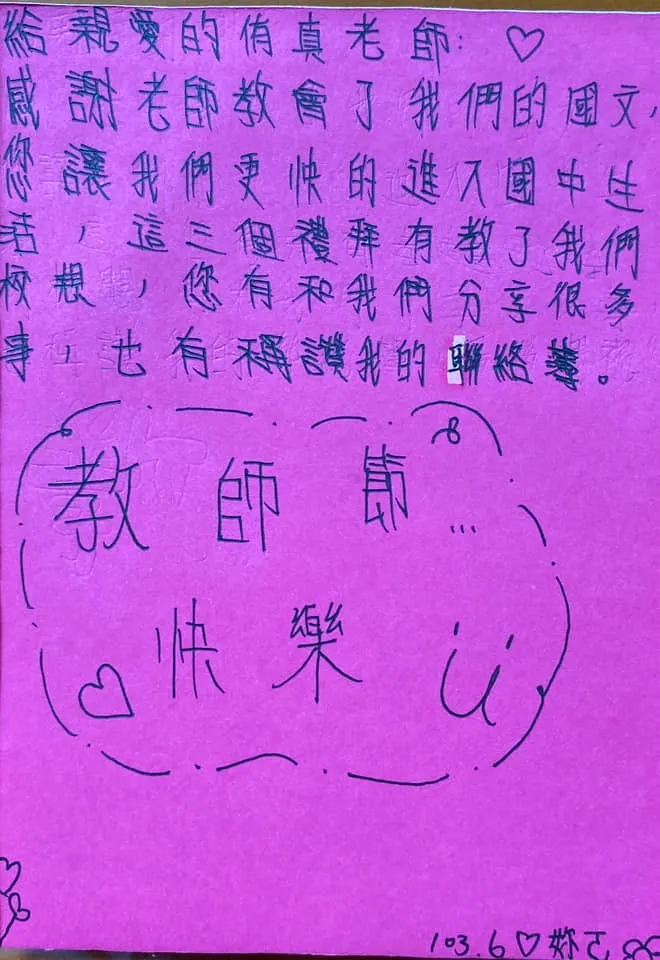 給親愛的侑真老師: ♡
感謝老師教會了我們的國文,
您讓我們更快的進入國中生
活,這三個禮拜有教了我們
校規,您有和我們分享很多
事,也有稱讚我的聯絡簿。
教師節...
快樂
103.6♡